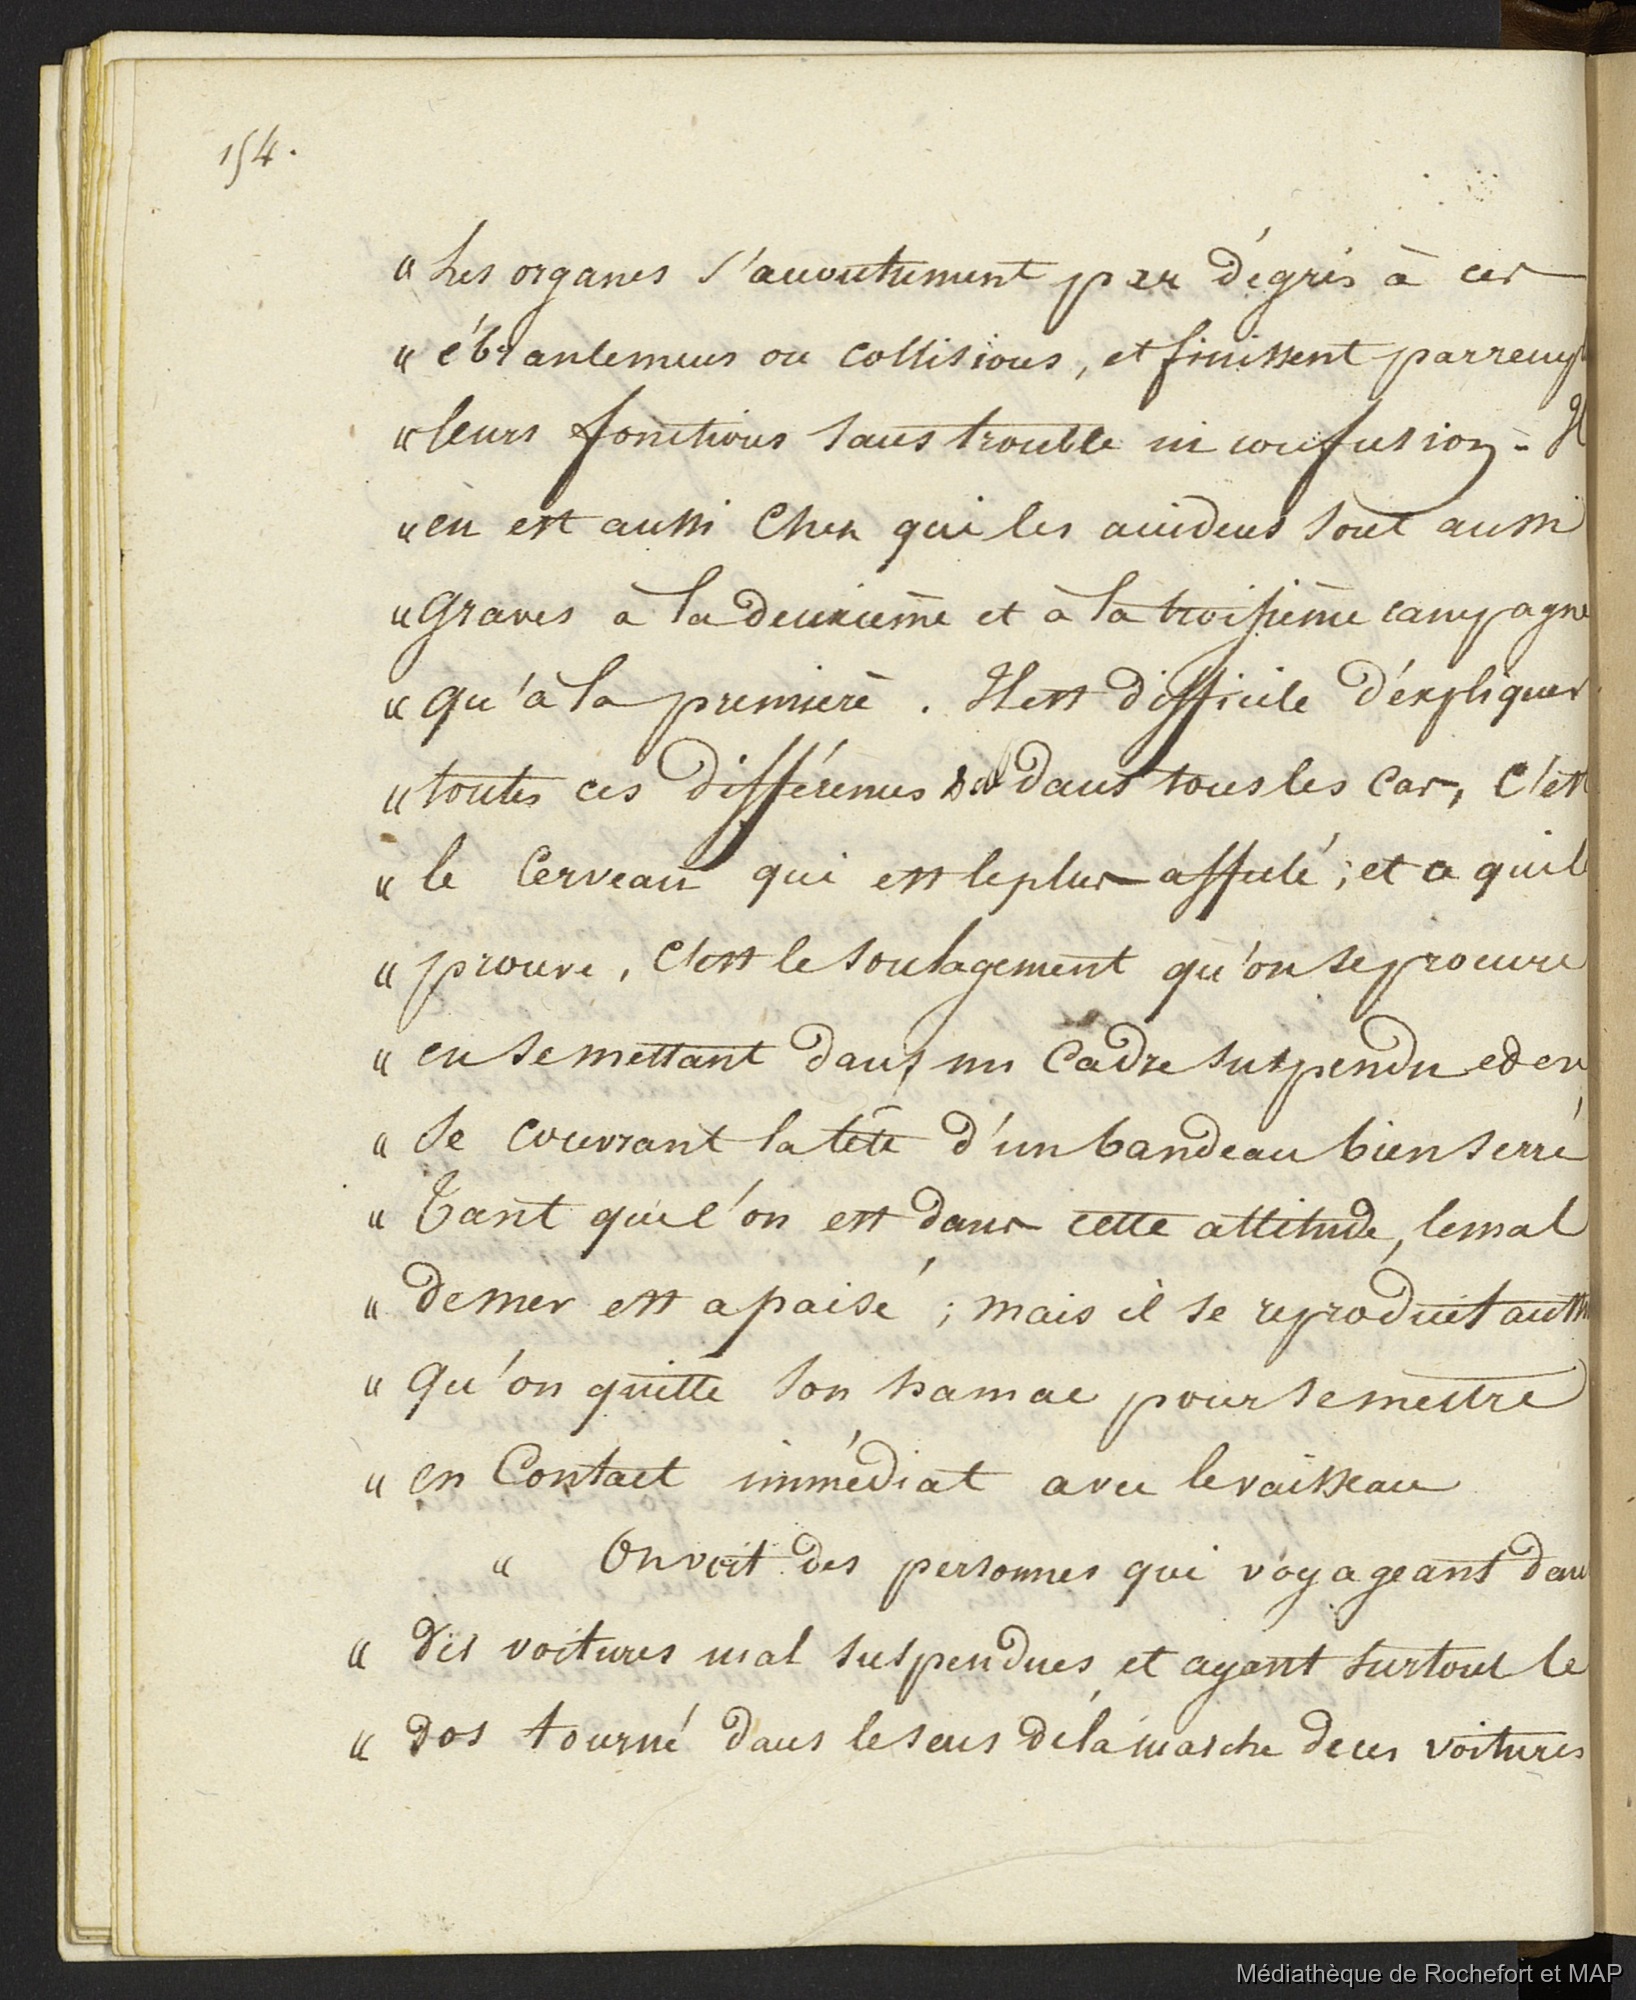 154.
" Les organes s'accoutument par dégrés à ces
" ébranlemens ou collisions, et finissent par
" leurs fonctions sans trouble ni confusion - Il
" en est aussi Chez qui les accidens sont aussi
" Graves à la deuxième et à la troisième campagne
" qu'à la première . Il est difficile d'expliquer
" toutes ces différences dans tous les Cas, C'est
" le Cerveau qui est le plus affecté ; et ce qui le
" prouve, C'est le soulagement qu'on se procure
" en se mettant dans un Cadre suspendu et en
" Se couvrant la tête d'un bandeau bien serré
" Tant que l'on est dans cette attitude, le mal
" de mer est apaisé ; mais il se reproduit
" Qu'on quitte son hamac pour se mettre
" en Contact immédiat avec le vaisseau
" On voit des personnes qui voyageant dans
" des voitures mal suspendues et ayant surtout le
" dos tourné dans le sens de la marche de ces voitures
Médiathèque de Rochefort et MAP